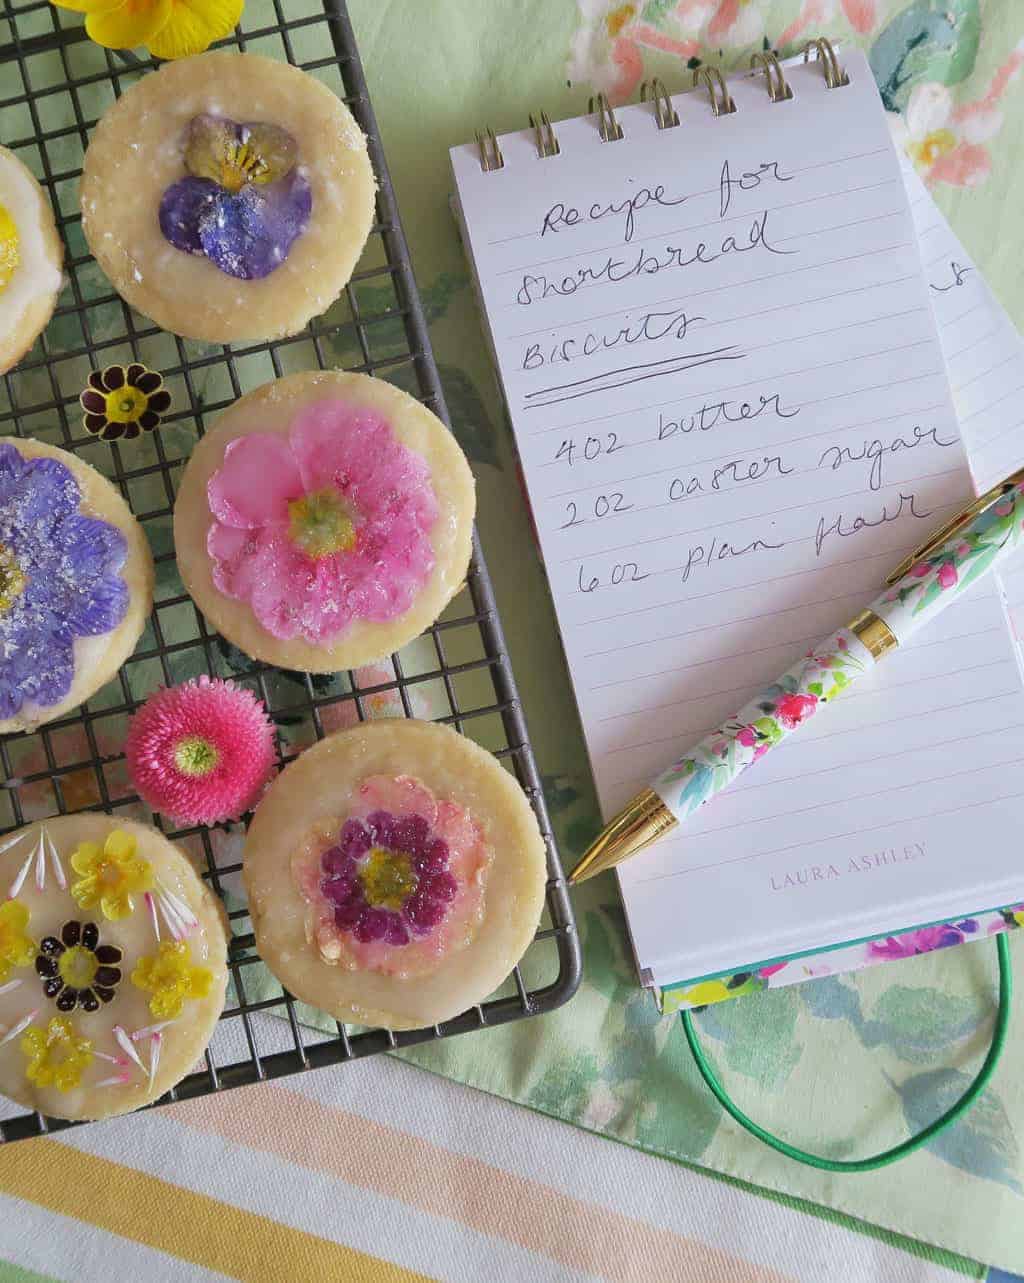 Recipe for
Shortbread
Biscuits
4oz butter
2oz caster sugar
6oz plain flair
LAURA ASHLEY